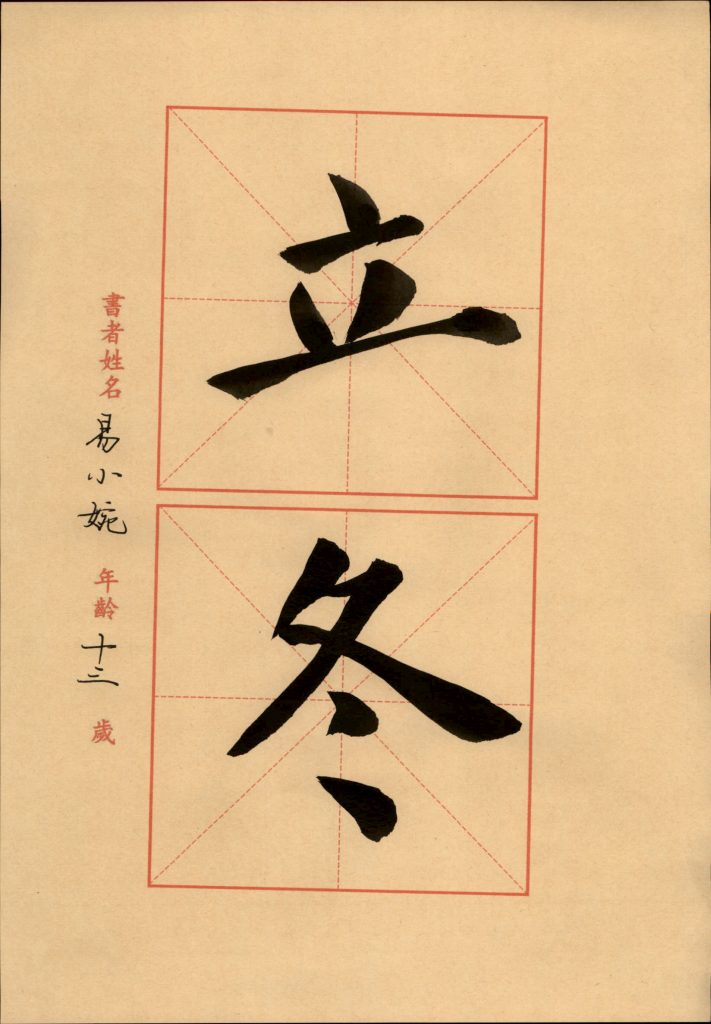 立冬
書者姓名 易小婉 年齡 十三 歲